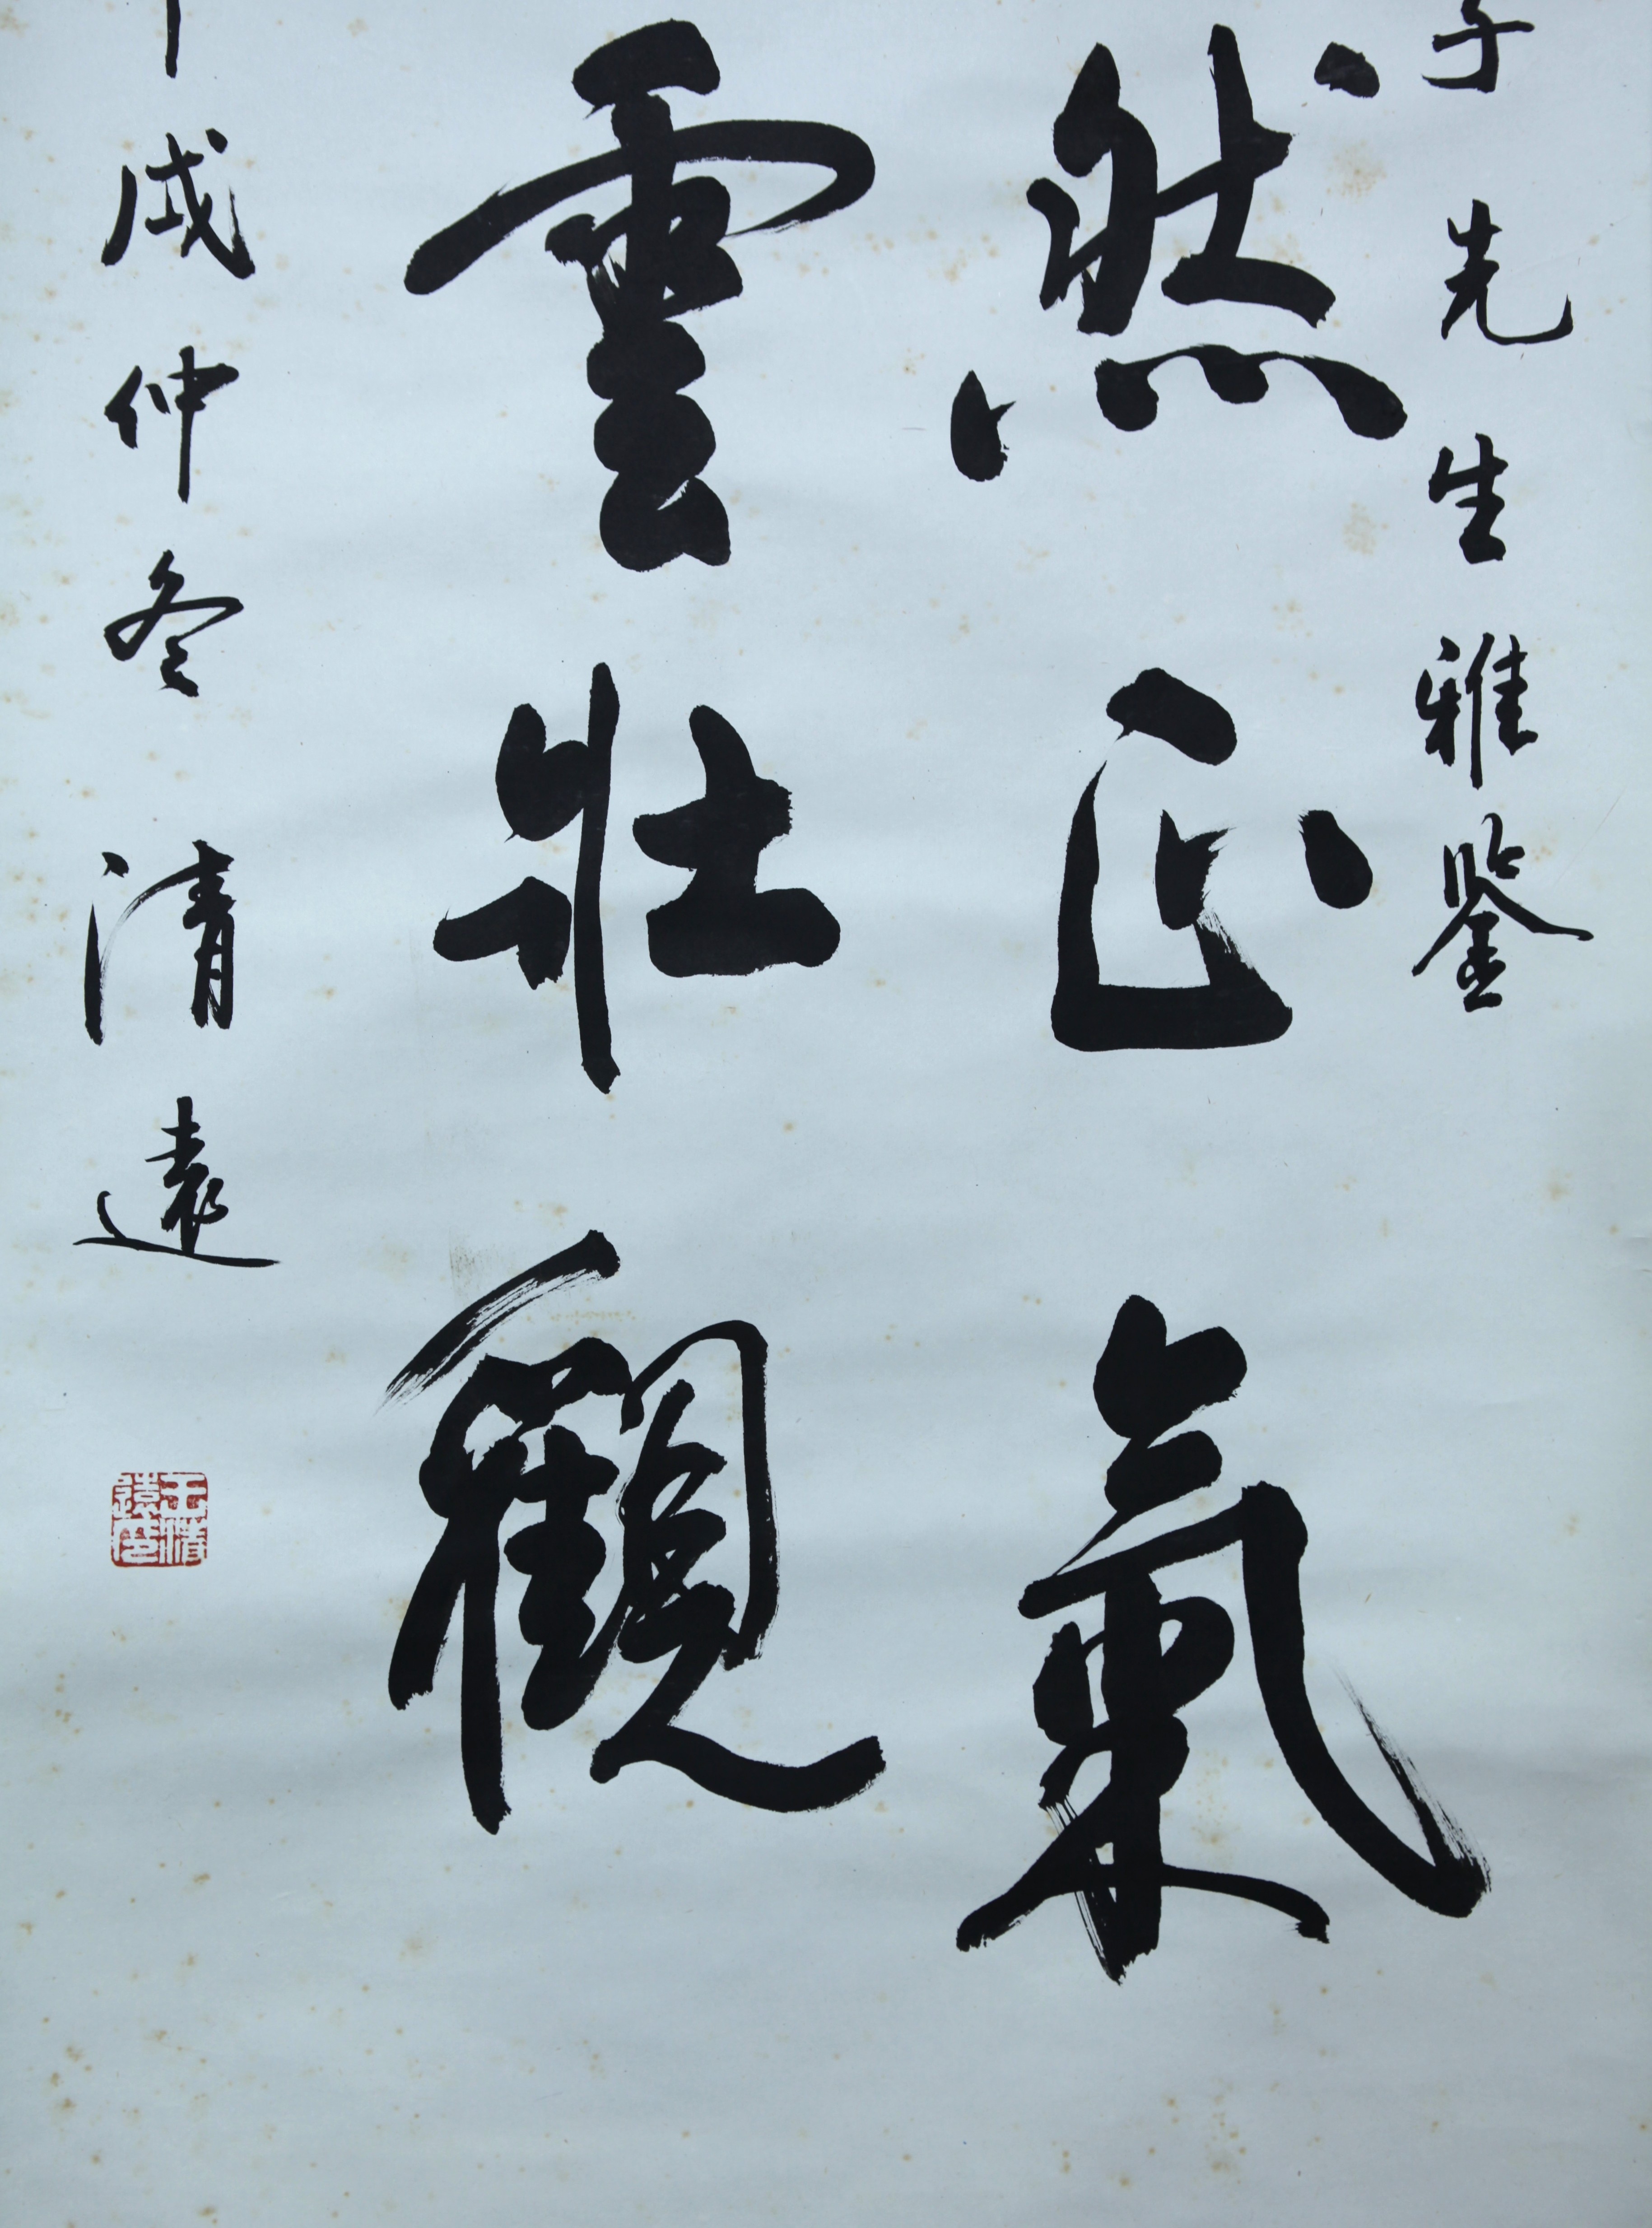 子先生雅鉴
然正氣
雲壮觀
戌仲冬 清遠
王清遠印